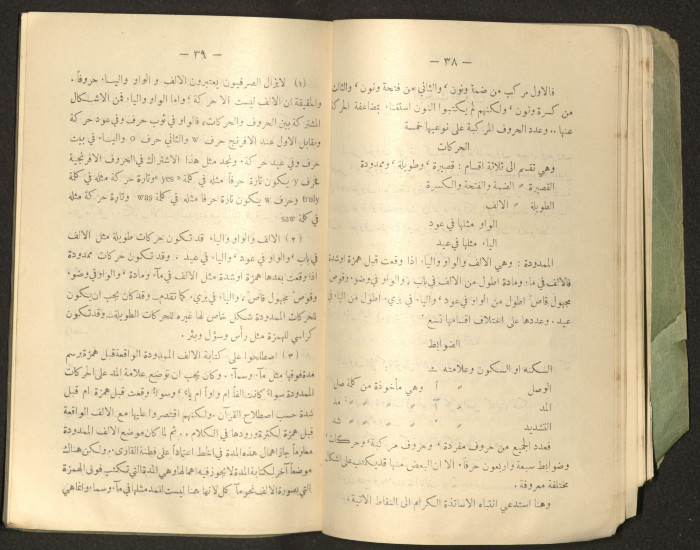 — ٣٨ —
فالاول مركب من ضمة ونون ، والثاني من فتحة ونون ، والثالث
من كسرة ونون ، ولكنهم لم يكتبوا النون استغناء بمضاعفة الحركة
عنها .. وعدد الحروف المركبة على نوعيها خمسة
الحركات
وهي تقديم الى ثلاثة اقسام : قصيرة ، وطويلة ، وممدودة
القصيرة » الضمة والفتحة والكسرة
الطويلة » الالف
الواو مثلها في عود
الياء مثلها في عيد
الممدودة : وهي الالف والواو والياء اذا وقعت قبل همزة او شدة
فالالف في ماء ومادة اطول من الالف في باب ، والواو في وضوء وقوص
مجهول قاص اطول من الواو في عود ، والياء في يزيء اطول من الياء في
عيد . وعددها على اختلاف اقسامها تسع
الضوابط
السكنه او السكون وعلامته
الوصل » آ وهي مأخوذة من كلمة صل
المد » آ » » » مد
التشديد » » » » شد
فعدد الجميع من حروف مفردة ، وحروف مركبة ، وحركات ،
وضوابط سبعة واربعون حرفاً. الا ان البعض منها قد يكتب على اشكال
مختلفة معروفة .
وهنا استدعي انتباه الاساتذة الكرام الى النقاط الآتية .
— ٣٩ —
(١) لا يزال الصرفيون يعتبرون الالف و الواو والياء حروفاً .
والحقيقة ان الالف ليست الا حركة ؛ واما الواو والياء فمن الاشكال
المشتركة بين الحروف والحركات ، فالواو في ثوب حرف وفي عود حركة
ويقابل الاول عند الافرنج حرف w والثاني حرف o والياء في بيت
حرف وفي عيد حركة . ونجد مثل هذا الاشتراك في الحروف الافرنجية
فحرف y يكون تارة حرفاً مثله في كلمة « yes » وتارة حركة مثله في كلة
truly وحرف w يكون تارة حرفا مثله في كلمة was وتارة حركة مثله
في كلمة saw
(٢) الالف والواو والياء قد تكون حركات طويلة مثل الالف
في باب ، والواو في عود ، والياء في عيد . وقد تكون حركات ممدودة
اذا وقعت بعدها همزة او شدة مثل الالف في ماء ومادة ، والواو في وضوء
وقوص مجهول قاص ، والياء في يزيء. كما تقدم . وقد كان يجب ان يكون
للحركات الممدودة شكل خاص لها غيره للحركات الطويلة . وقد تكون
كراسي للهمزة مثل رأس وسؤل وبئر .
(٣) اصطلحوا على كتابة الالف الممدودة الواقعة قبل همزة برسم
مدة فوقها مثل مآء وسمآء . وكان يجب ان توضع علامة المد على الحركات
الممدودة سواء كانت الفاً ام واواً ام ياء ، وسواء وقعت قبل همزة ام قبل
شدة حسب اصطلاح القرآن . ولكنهم اقتصروا عليها مع الالف الواقعة
قبل همزة لكثرة ورودها في الكلام ... ثم لما كان موضع الالف الممدودة
معلوماً جاز اهمال هذه المدة في الخط اعتماداً على فطنة القارىء . ولكن هناك
موضعاً آخر لكتابة المدة لا يجوز فيه اهمالها وهي المدة التي تكتب فوق الهمزة
التي بصورة الالف نحو مآكل لانها هنا ليست للمد مثلها في مآء وسمآء وانما هي